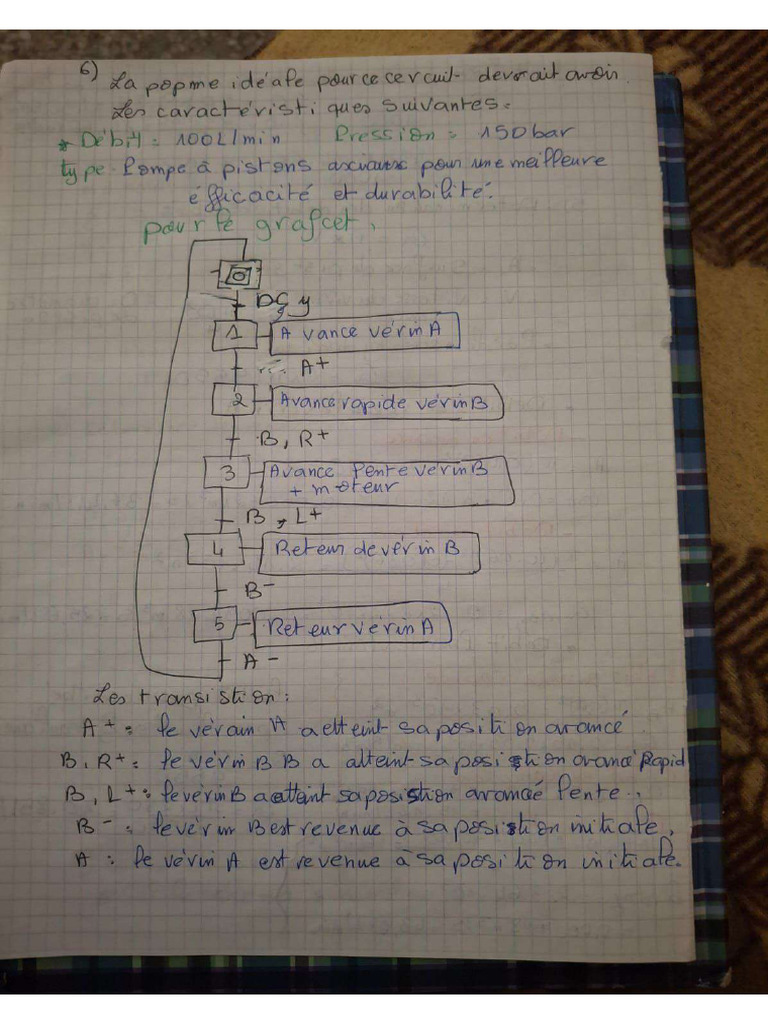 6) La popme idéale pour ce cercuit devrait avoir
Les caractéristiques suivantes.
* Débit = 100L/min Pression = 150 bar
type Pompe à pistons axiaux pour une meilleure
éfficacité et durabilité.
pour le grafcet.
0
DCy
1 Avance vérin A
A+
2 Avance rapide vérin B
B, R+
3 Avance lente vérin B
+ moteur
B, L+
4 Reteur de vérin B
B-
5 Reteur vérin A
A-
Les transistion :
A+ : le vérain A a etteint sa position avancé
B, R+ : le vérin B B a atteint sa position avancé Rapid
B, L+ : le vérin B a atteint sa position avancé lente.
B- : le vérin B est revenue à sa position initiale,
A : le vérin A est revenue à sa position initiale.